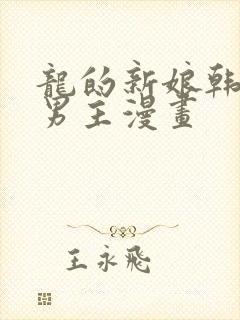 龍的新娘韓
男主漫畫
王永飛